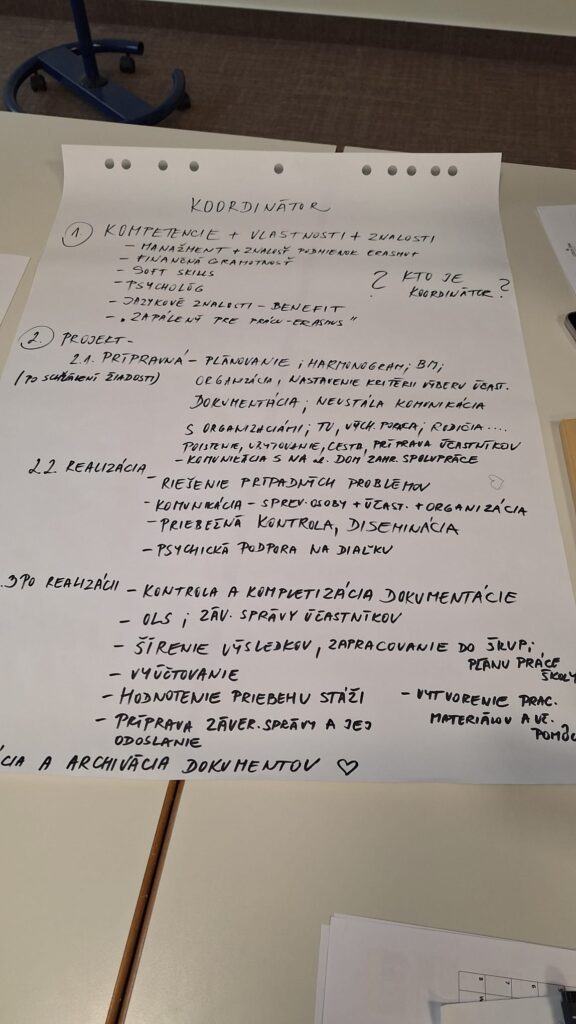 KOORDINÁTOR
1. KOMPETENCIE + VLASTNOSTI + ZNALOSTI
- MANAŽMENT + ZNALOSŤ PODMIENOK ERASMU+
- FINANČNÁ GRAMOTNOSŤ
- SOFT SKILLS
- PSYCHOLÓG
- JAZYKOVÉ ZNALOSTI - BENEFIT
- „ZAPÁLENÝ PRE PRÁCU - ERASMUS"
? KTO JE
KOORDINÁTOR?
2. PROJEKT -
2.1. PRÍPRAVNÁ - PLÁNOVANIE ; HARMONOGRAM; BM;
(PO SCHVÁLENÍ ŽIADOSTI) ORGANIZÁCIA, NASTAVENIE KRITÉRIÍ VÝBERU ÚČAST.
DOKUMENTÁCIA; NEUSTÁLA KOMUNIKÁCIA
S ORGANIZÁCIAMI; TU, VÝCH. PORADCA; RODIČIA ....
POISTENIE, UBYTOVANIE, CESTA, PRÍPRAVA ÚČASTNÍKOV
- KOMUNIKÁCIA S NA DOM ZAHR. SPOLUPRÁCE
2.2. REALIZÁCIA - RIEŠENIE PRÍPADNÝCH PROBLÉMOV
- KOMUNIKÁCIA - SPREV. OSOBY + ÚČAST. + ORGANIZÁCIA
- PRIEBEŽNÁ KONTROLA, DISEMINÁCIA
- PSYCHICKÁ PODPORA NA DIAĽKU
.3 PO REALIZÁCII - KONTROLA A KOMPLETIZÁCIA DOKUMENTÁCIE
- OLS ; ZÁV. SPRÁVY ÚČASTNÍKOV
- ŠÍRENIE VÝSLEDKOV, ZAPRACOVANIE DO ŠKVP;
PLÁNU PRÁCE
ŠKOLY
- VYÚČTOVANIE
- HODNOTENIE PRIEBEHU STÁŽÍ
- VYTVORENIE PRAC.
MATERIÁLOV A UČ.
POMÔC
- PRÍPRAVA ZÁVER. SPRÁVY A JEJ
ODOSLANIE
CIA A ARCHIVÁCIA DOKUMENTOV ♡